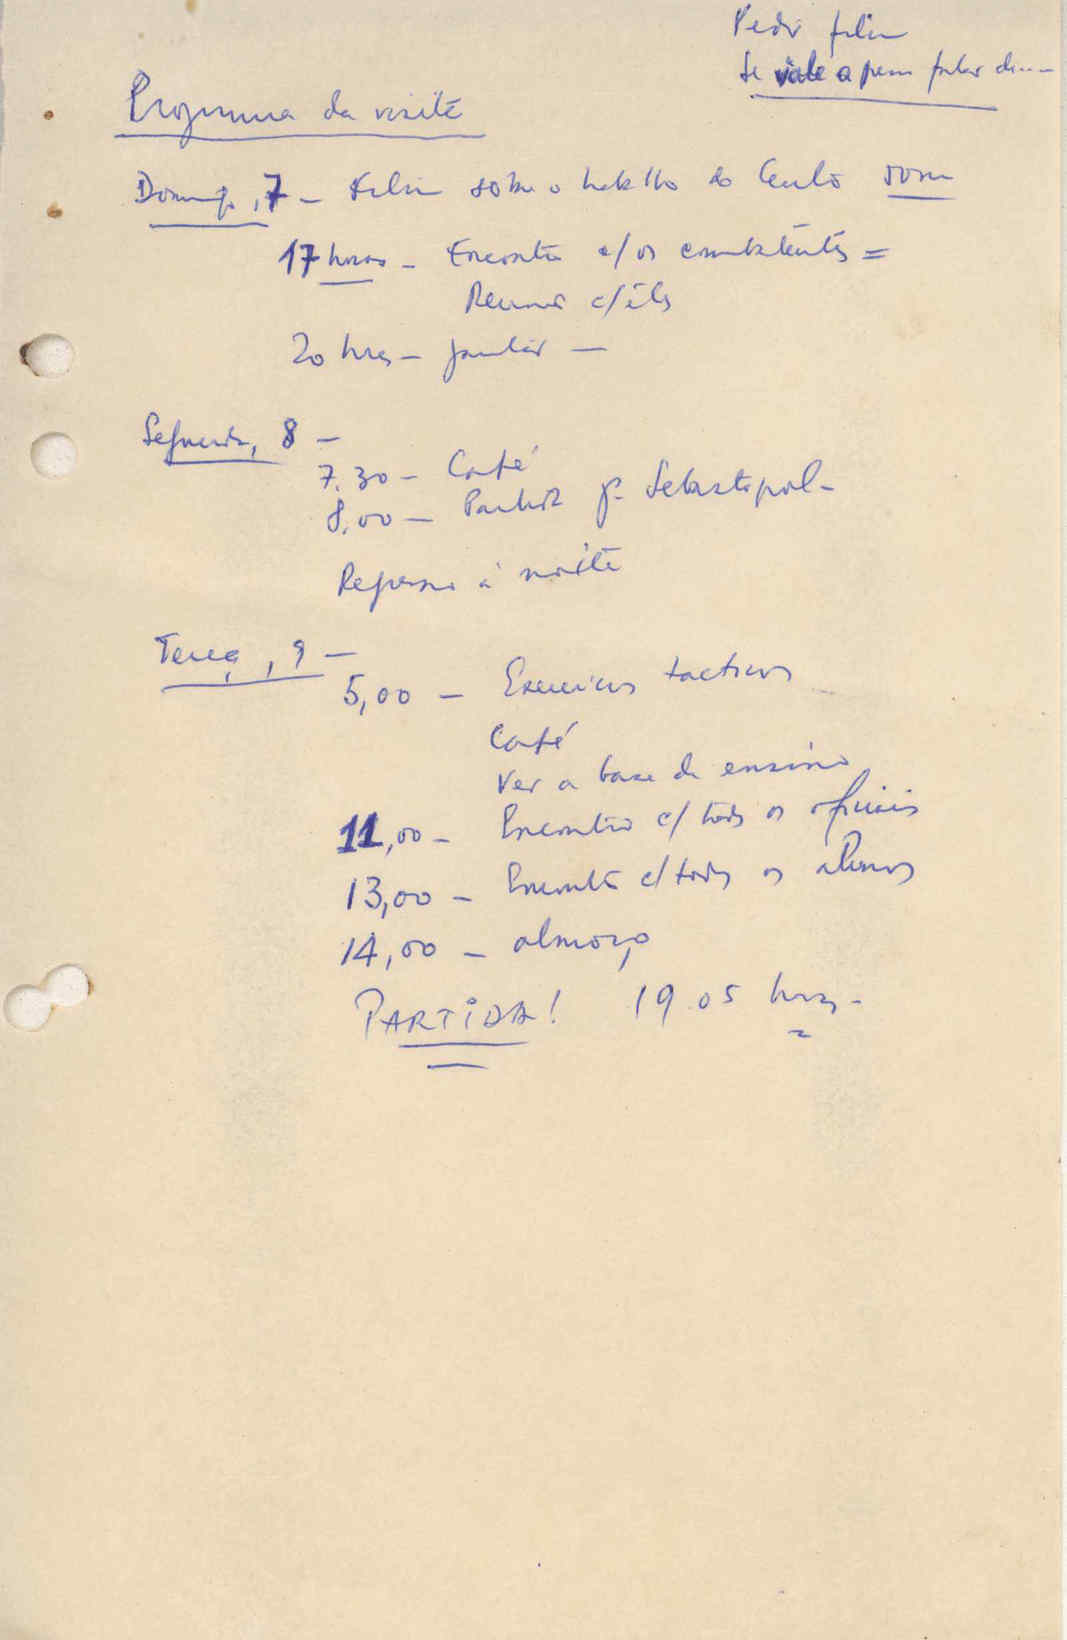 Pedir filme
Se vale a pena falar
Programa da visita
Domingo, 7 - Filme sobre o trabalho do Centro
17 horas - Encontro c/ os combatentes =
Reunir c/ êles
20 hrs - jantar -
Segunda, 8 -
7.30 - Café
8,00 - Partida pª Sebastopol -
Regresso à noite
Terça, 9 -
5,00 - Exercicios tacticos
Café
Ver a base de ensino
11,00 - Encontro c/ todos os oficiais
13,00 - Encontro c/ todos os alunos
14,00 - almoço
PARTIDA! 19.05 hrs -